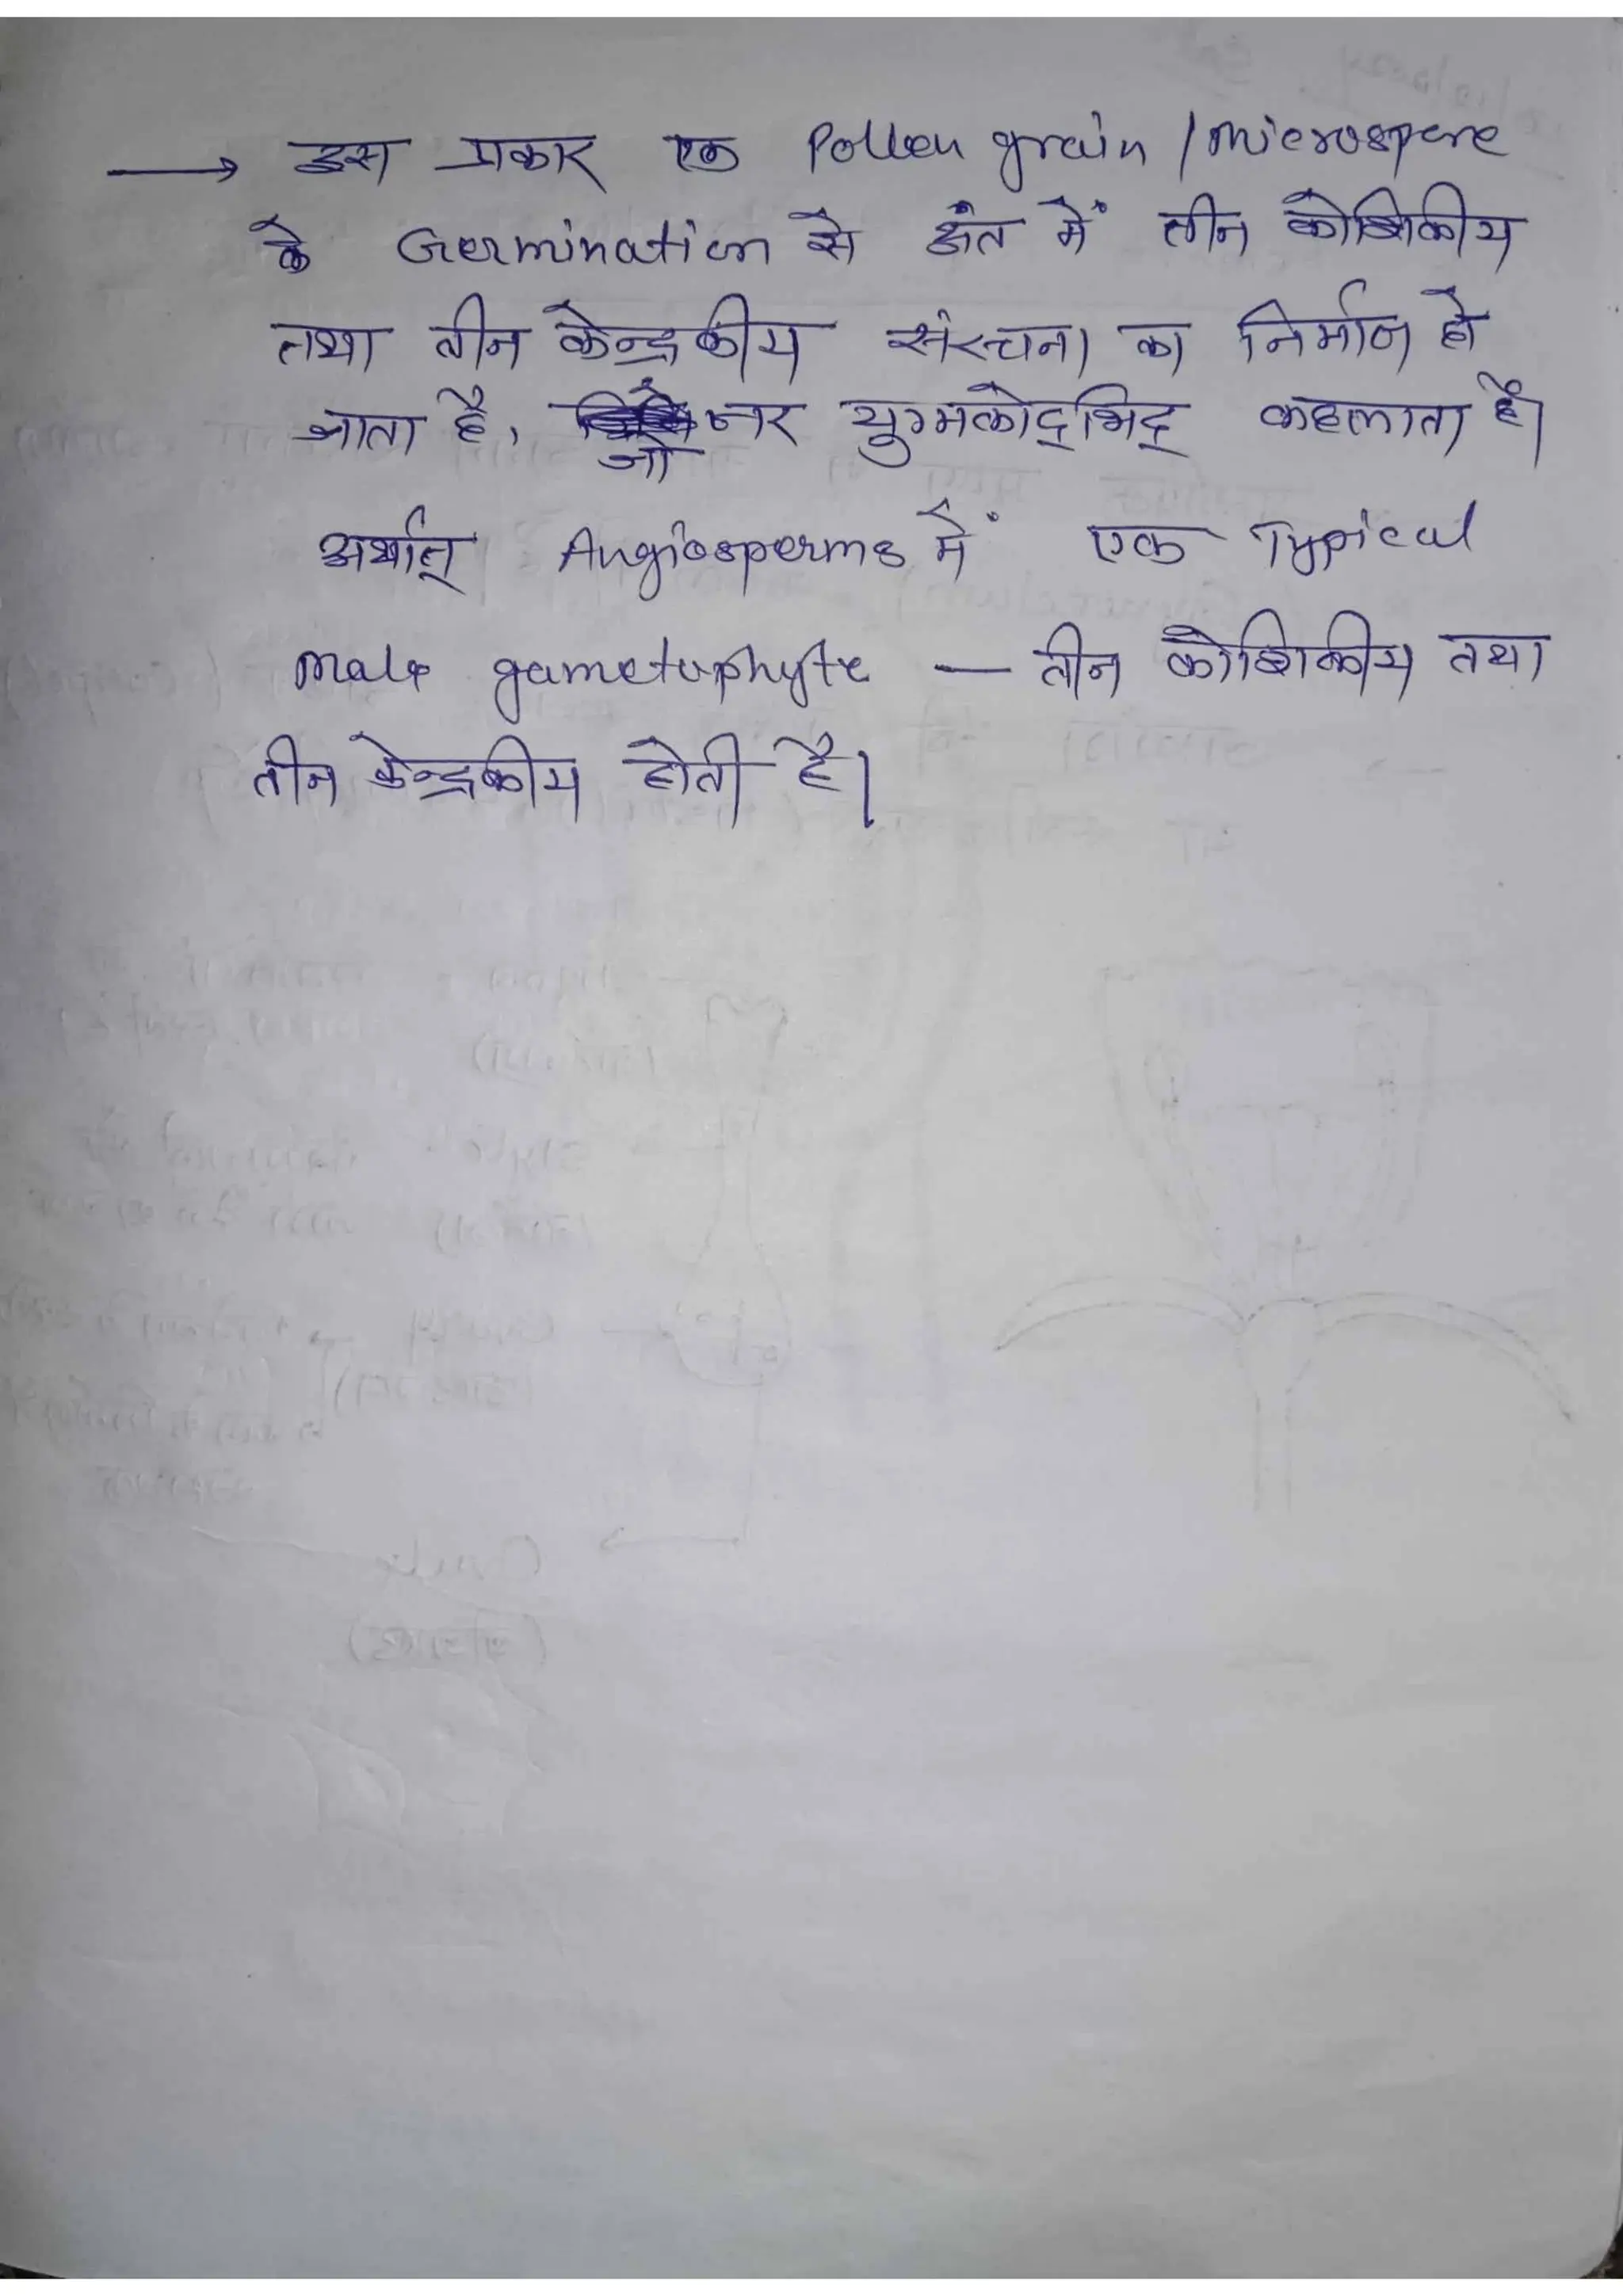 → इस प्रकार एक Pollen grain / Microspere
के Germination से अंत में तीन कोशिकीय
तथा तीन केन्द्रकीय संरचना का निर्माण हो
जाता है, जो नर युग्मकोद्भिद् कहलाता है।
अर्थात् Angiosperms में एक Typical
male gametophyte — तीन कोशिकीय तथा
तीन केन्द्रकीय होती है।